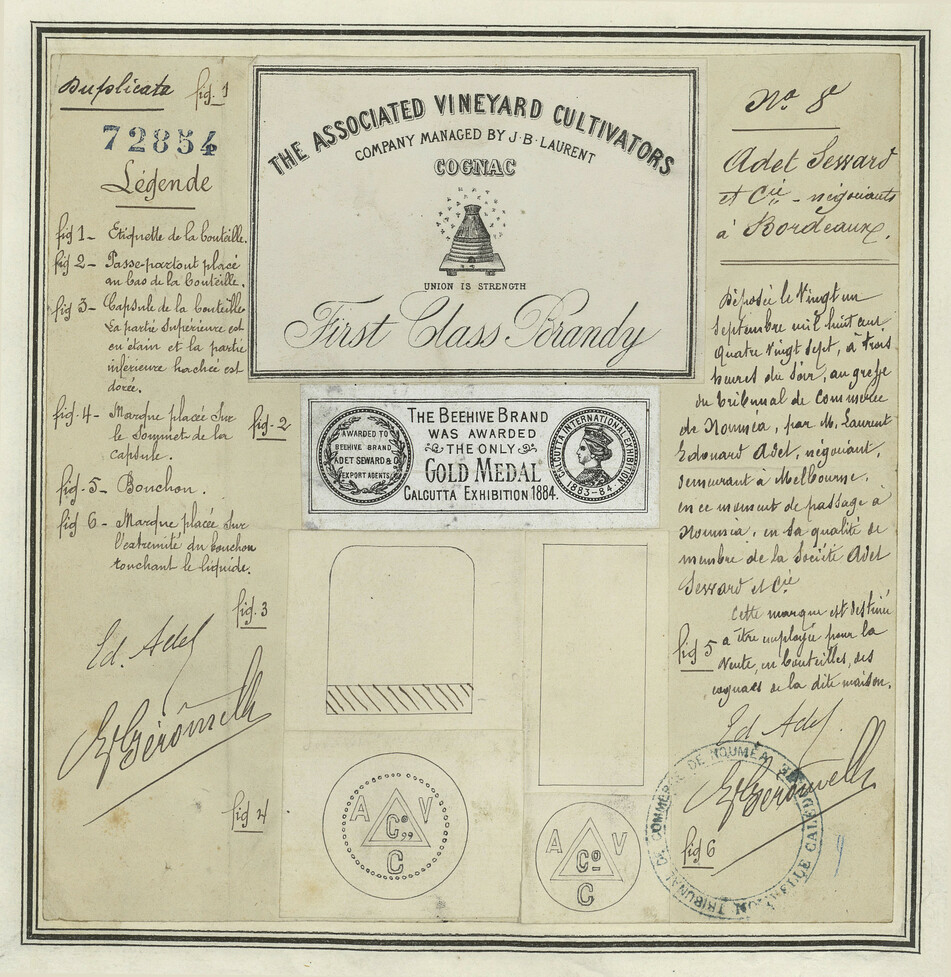 Duplicata
fig. 1
72854
Légende
fig 1 - Etiquette de la bouteille.
fig 2 - Passe-partout placé
au bas de la bouteille.
fig 3 - Capsule de la bouteille
La partie supérieure est
en étain et la partie
inférieure hachée est
dorée.
fig. 4 - Marque placée sur
le sommet de la
capsule.
fig - 5 - Bouchon.
fig 6 - Marque placée sur
l'extremité du bouchon
touchant le liquide.
Ed. Adet
THE ASSOCIATED VINEYARD CULTIVATORS
COMPANY MANAGED BY J-B-LAURENT
COGNAC
UNION IS STRENGTH
First Class Brandy
fig - 2
AWARDED TO
BEEHIVE BRAND
ADET SEWARD & Co
EXPORT AGENTS
THE BEEHIVE BRAND
WAS AWARDED
THE ONLY
GOLD MEDAL
CALCUTTA EXHIBITION 1884.
CALCUTTA INTERNATIONAL EXHIBITION
1883-84
fig. 3
fig 4
A V
Co
C
A V
Co
C
No 8
Adet Seward
et Cie - négociants
à Bordeaux.
Déposée le Vingt un
Septembre mil huit cent
quatre vingt sept, à trois
heures du soir, au greffe
du Tribunal de Commerce
de Nouméa, par M. Laurent
Edouard Adet, négociant,
demeurant à Melbourne,
en ce moment de passage à
Nouméa, en sa qualité de
membre de la Société Adet
Seward et Cie
Cette marque est destinée
fig 5
à être employée pour la
vente, en bouteilles, des
cognacs de la dite maison.
Ed Adet.
fig 6
TRIBUNAL DE COMMERCE DE NOUMÉA